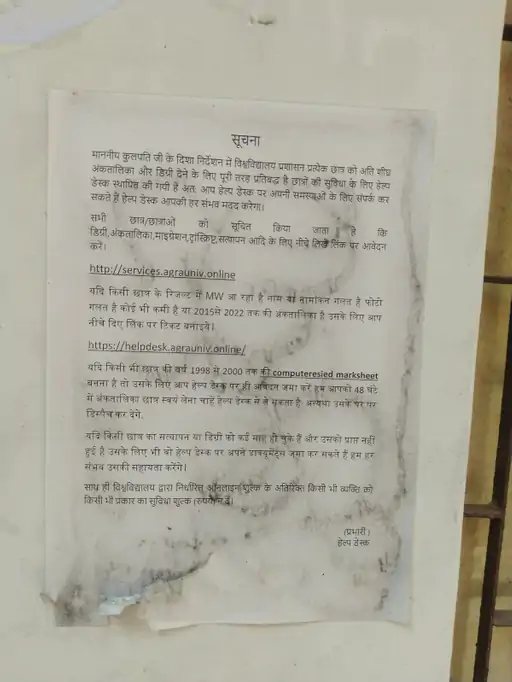 सूचना
माननीय कुलपति जी के दिशा निर्देशन में विश्वविद्यालय प्रशासन प्रत्येक छात्र को अति शीघ्र
अंकतालिका और डिग्री देने के लिए पूरी तरह प्रतिबद्ध है छात्रों की सुविधा के लिए हेल्प
डेस्क स्थापित की गयी हैं अतः आप हेल्प डेस्क पर अपनी समस्याओं के लिए संपर्क कर
सकते हैं हेल्प डेस्क आपकी हर संभव मदद करेगा।
सभी छात्र/छात्राओं को सूचित किया जाता है कि
डिग्री,अंकतालिका,माइग्रेशन,ट्रांस्क्रिप्ट,सत्यापन आदि के लिए नीचे लिखे लिंक पर आवेदन
करें।
http://services.agrauniv.online
यदि किसी छात्र के रिजल्ट में MW आ रहा है नाम या नामांकन गलत है फोटो
गलत है कोई भी कमी है या 2015से 2022 तक की अंकतालिका है उसके लिए आप
नीचे दिए लिंक पर टिकट बनाइये।
https://helpdesk.agrauniv.online/
यदि किसी भी छात्र की वर्ष 1998 से 2000 तक की computeresied marksheet
बनना है तो उसके लिए आप हेल्प डेस्क पर ही आवेदन जमा करें हम आपको 48 घंटे
में अंकतालिका छात्र स्वयं लेना चाहें हेल्प डेस्क से ले सकता है अन्यथा उसके घर पर
डिस्पैच कर देंगे.
यदि किसी छात्र का सत्यापन या डिग्री को कई माह हो चुके हैं और उसको प्राप्त नहीं
हुई है उसके लिए भी वो हेल्प डेस्क पर अपने डाक्यूमेंट्स जमा कर सकते हैं हम हर
संभव उसकी सहायता करेंगे।
साथ ही विश्वविद्यालय द्वारा निर्धारित ऑनलाइन शुल्क के अतिरिक्त किसी भी व्यक्ति को
किसी भी प्रकार का सुविधा शुल्क (रुपये) न दें।
(प्रभारी)
हेल्प डेस्क